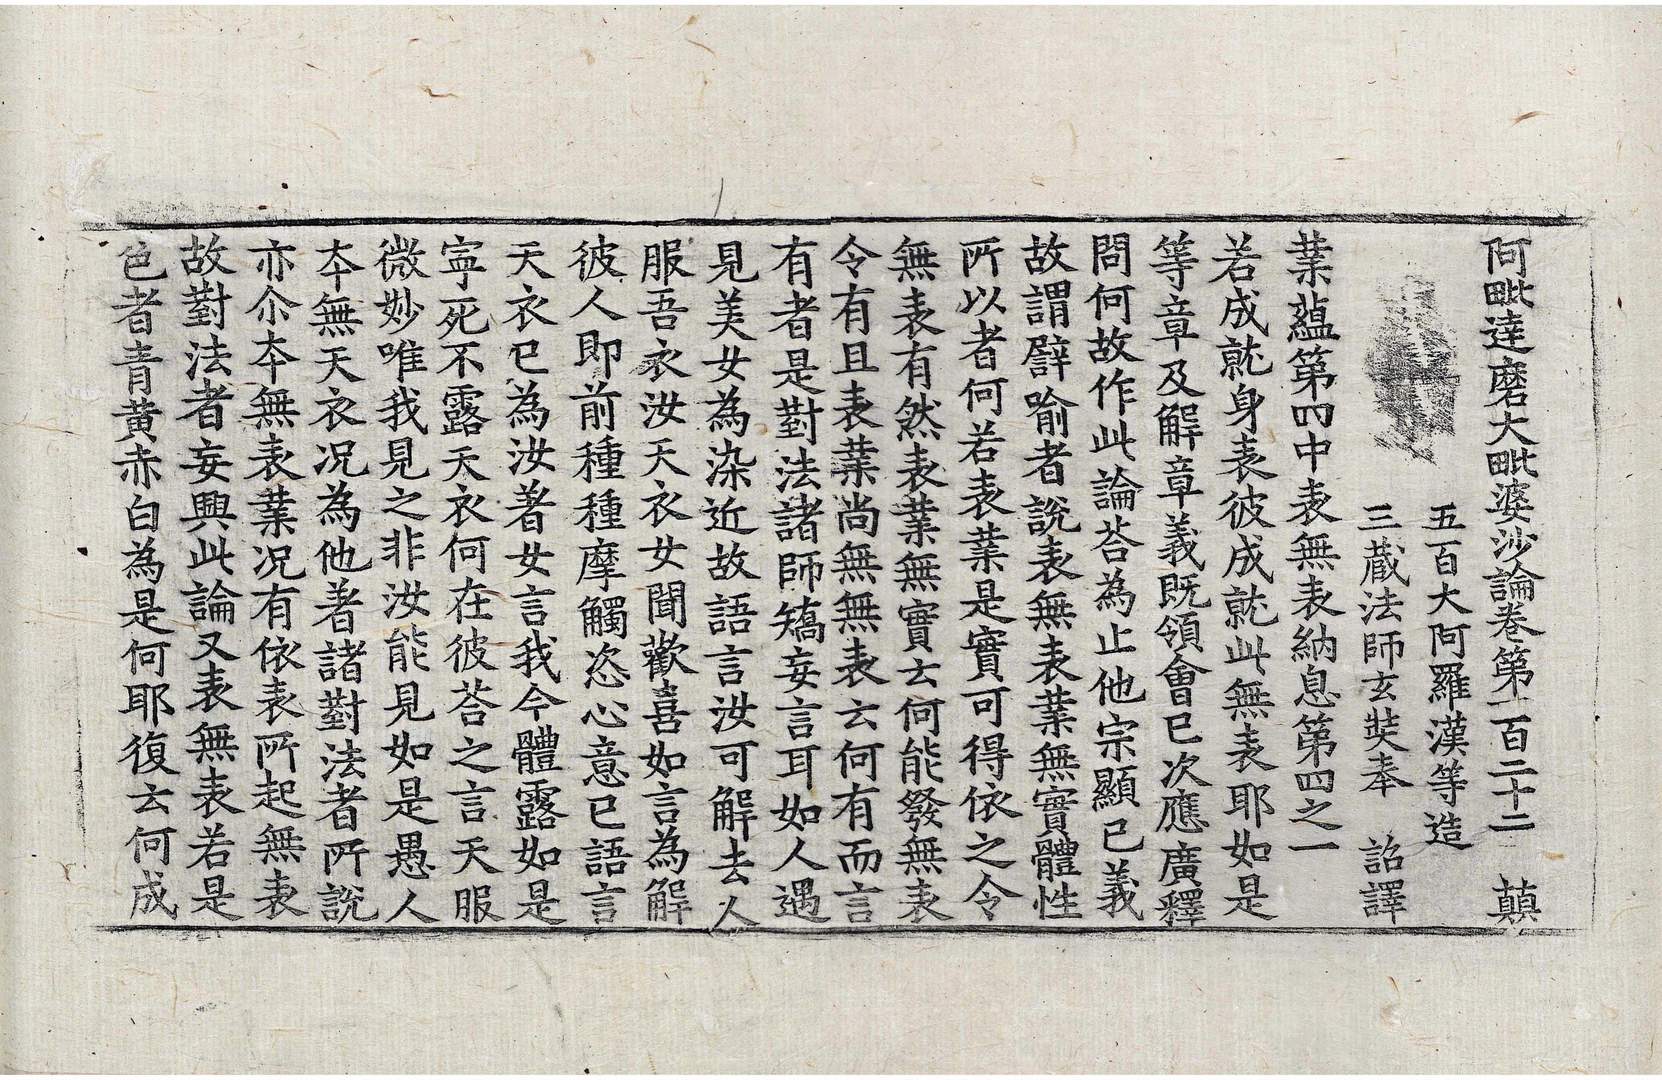 阿毗達磨大毗婆沙論卷第一百二十二 顛
五百大阿羅漢等造
三藏法師玄奘奉 詔譯
業蘊第四中表無表納息第四之一
若成就身表彼成就此無表耶如是
等章及解章義既領會已次應廣釋
問何故作此論荅為止他宗顯已義
故謂譬喻者說表無表業無實體性
所以者何若表業是實可得依之令
無表有然表業無實云何能發無表
令有且表業尚無無表云何有而言
有者是對法諸師矯妄言耳如人遇
見美女為染近故語言汝可解去人
服吾衣汝天衣女聞歡喜如言為解
彼人即前種種摩觸恣心意已語言
天衣已為汝著女言我今體露如是
寧死不露天衣何在彼荅之言天服
微妙唯我見之非汝能見如是愚人
夲無天衣况為他著諸對法者所說
亦尒夲無表業况有依表所起無表
故對法者妄興此論又表無表若是
色者青黃赤白為是何耶復云何成